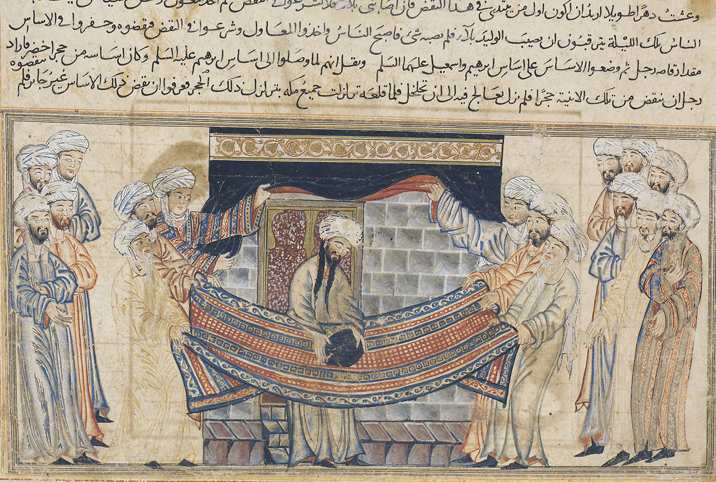 وعشت دهرا طويلا اريد ان اكون اول من يبتدئ في هذا النقض فان اصابني بلاء فلا تشرعوا في النقض
الناس تلك الليلة يترقبون ان يصيب الوليد بلاء فلم يصبه شى فاصبح الناس واخذوا المعاول وشرعوا فى النقض فنقضوه وحفروا الى الاساس
مقدار قامة رجل ثم وضعوا الاساس على اساس ابرهيم واسمعيل عليهما السلم ونقل انهم لما وصلوا الى اساس ابرهيم عليه السلم وكان اساسه من حجر اخضر فاراد
رجل ان ينقض من تلك الابنية حجرا فلم يزل يعالج فيه الى ان تخلخل فلما قلعه تزلزلت جميع مكه بتزلزل ذلك الحجر فعرفوا ان نقض ذلك الاساس غير جايز فلم ينقضوه